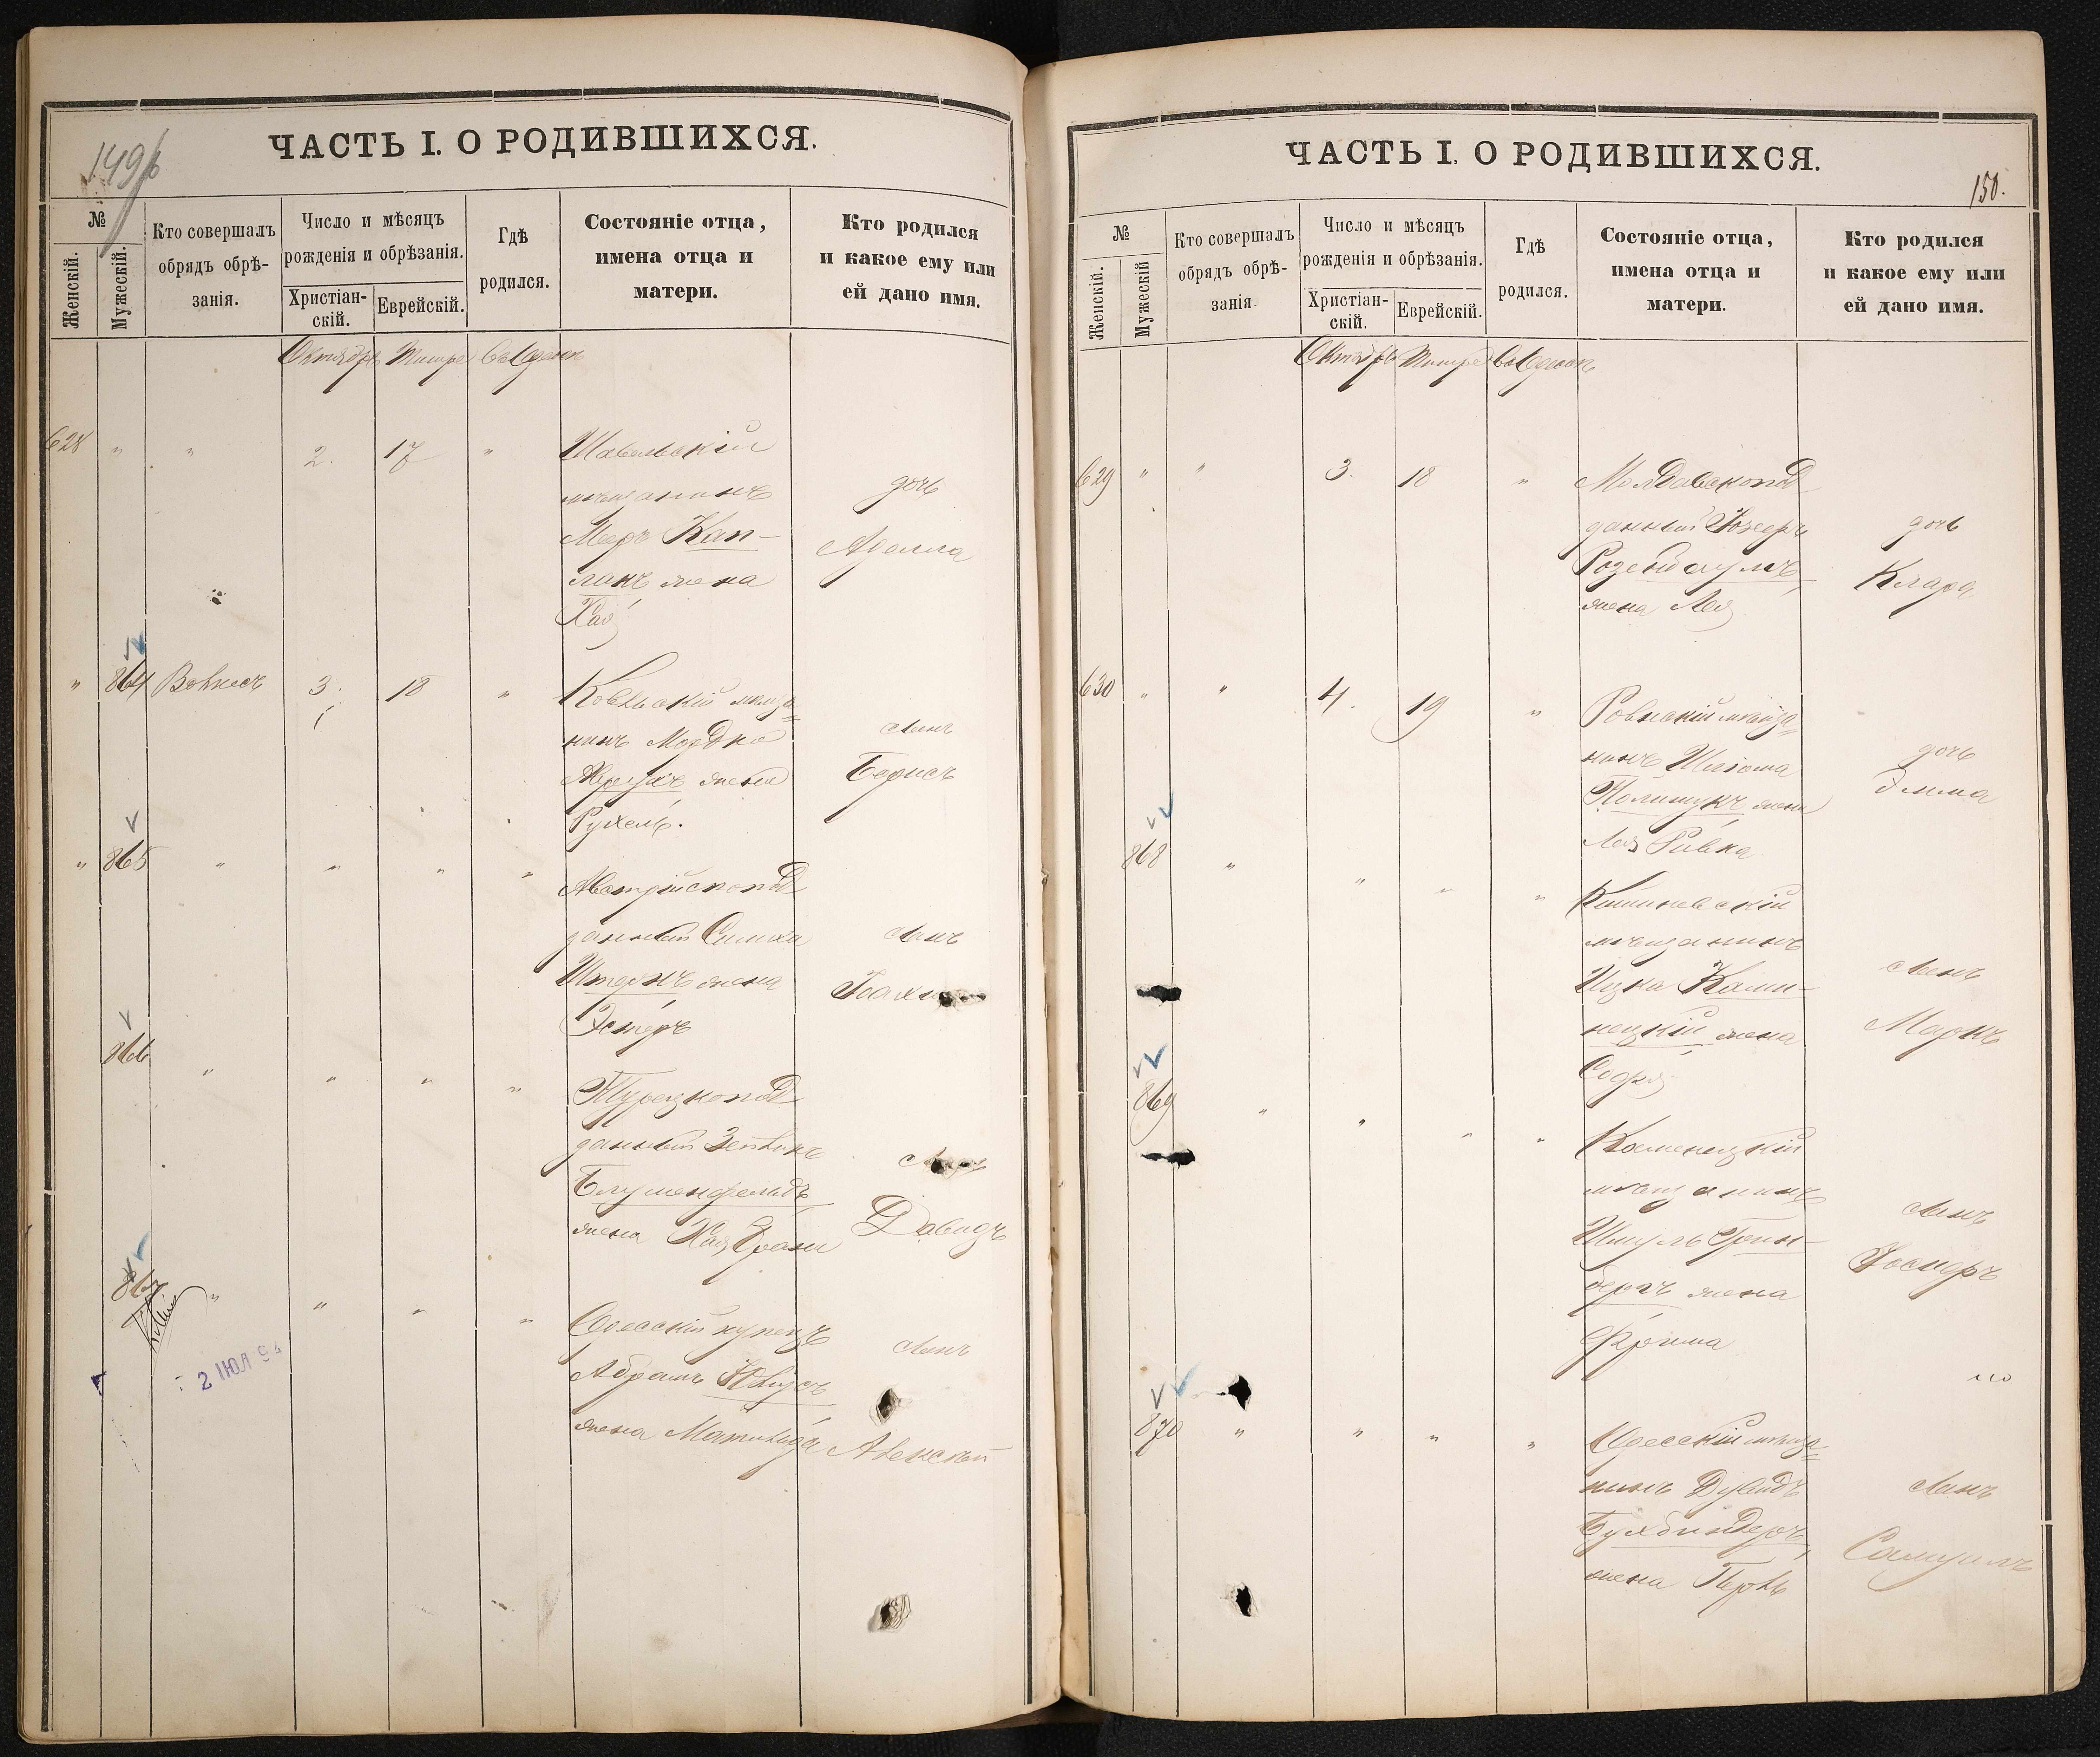 149
ЧАСТЬ I. О РОДИВШИХСЯ.
№
Женскій.
Мужескій.
Кто совершалъ
обрядъ обрѣ-
занія.
Число и мѣсяцъ
рожденія и обрѣзанія.
Христіан-
скій.
Еврейскій.
Гдѣ
родился.
Состояніе отца,
имена отца и
матери.
Кто родился
и какое ему или
ей дано имя.
Октябрь Тишре Въ Одессѣ
628 " " 2. 17 "
мѣщанинъ
Меръ Кап-
ланъ жена
Хая
дочь
Аделла
" 864 3. 18 "
Ковельскій мѣща=
нинъ Мордко
жена
Рухель.
сынъ
Борисъ
" 865 " " " "
Австрійскопод
данный Симха
Штернъ жена
Эстеръ
сынъ
866 " " " "
Турецкопод
данный
Блуменфельдъ
жена Хая
Давидъ
867 " " " "
Одесскій купецъ
Абрамъ
жена Матильда
сынъ
Алексѣй
2 ІЮЛ 9
ЧАСТЬ I. О РОДИВШИХСЯ.
150.
№
Женскій.
Мужескій
Кто совершалъ
обрядъ обрѣ-
занія.
Число и мѣсяцъ
рожденія и обрѣзанія.
Христіан-
скій.
Еврейскій.
Гдѣ
родился.
Состояніе отца,
имена отца и
матери.
Кто родился
и какое ему или
ей дано имя.
Октябрь Тишре Въ Одессѣ
629 " " 3. 18 "
Молдавскопод
данный
Розенблумъ,
жена Лея
дочь
Клара
630 " " 4. 19 "
Ровенскій мѣща=
нинъ Шлёма
Полищукъ жена
Лея Ривка
дочь
Эмма
868 " " " "
Кишиневскій
мѣщанинъ
Ицко Ками-
нецкій жена
Софія
сынъ
Маркъ
869 " " " "
Каменецкій
мѣщанинъ
Шмуль Грин-
бергъ жена
Фрима
сынъ
Іосифъ
870 " " " "
Одесскій мѣща=
нинъ Дувидъ
Бухбиндеръ,
жена Перль
сынъ
Самуилъ